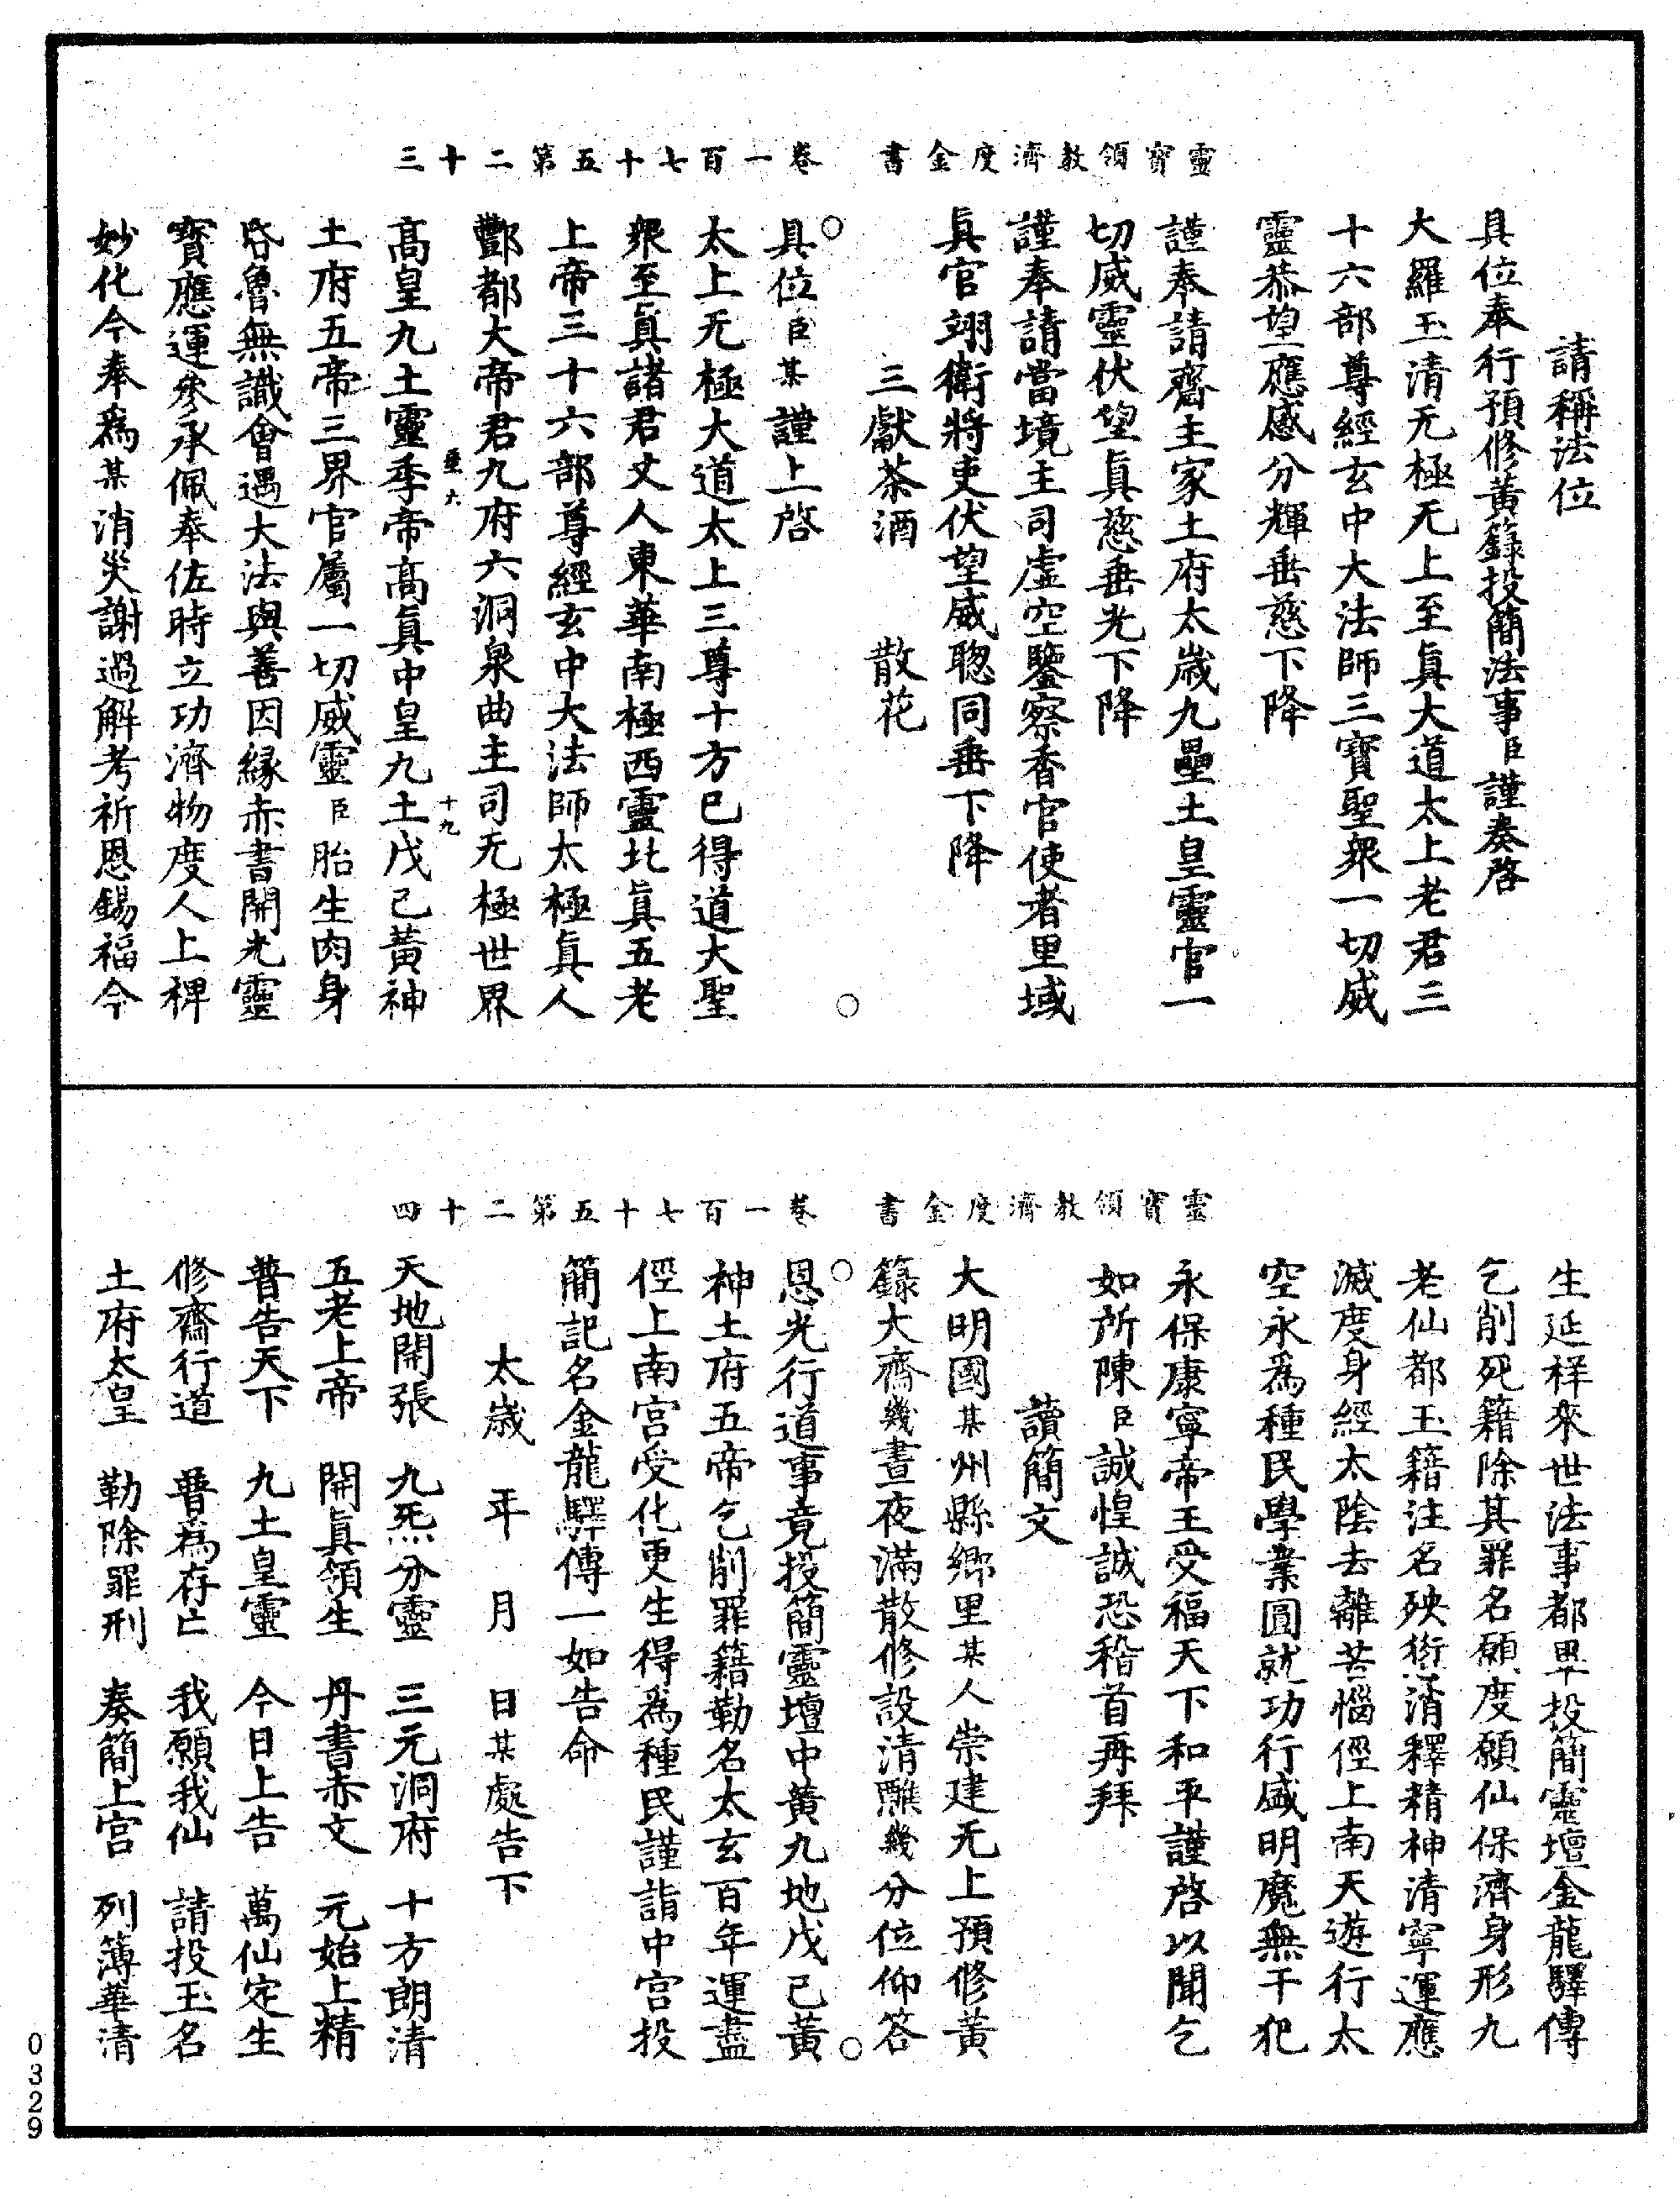 靈寶領教濟度金書 卷一百七十五第二十三
請稱法位
具位奉行預修黃籙投簡法事臣謹奏啓
大羅玉清无極无上至眞大道太上老君三
十六部尊經玄中大法師三寶聖衆一切威
靈恭望應感分輝垂慈下降
謹奉請齋主家土府太歲九壘土皇靈官一
切威靈伏望眞慈垂光下降
謹奉請當境主司虛空鑒察香官使者里域
眞官翊衛將吏伏望威聰同垂下降
三獻茶酒 散花
○ ○
具位臣某謹上啓
太上无極大道太上三尊十方已得道大聖
衆至眞諸君丈人東華南極西靈北眞五老
上帝三十六部尊經玄中大法師太極眞人
酆都大帝君九府六洞泉曲主司无極世界
十九
高皇九土靈季帝高眞中皇九土戊己黃神
土府五帝三界官屬一切威靈臣胎生肉身
昏魯無識會遇大法與善因緣赤書開光靈
寶應運參承佩奉佐時立功濟物度人上稗
妙化今奉爲某消災謝過解考祈恩錫福今
靈寶領教濟度金書 卷一百七十五第二十四
生延祥來世法事都畢投簡靈壇金龍驛傳
乞削死籍除其罪名願度願仙保濟身形九
老仙都玉籍注名殃衍清釋精神清寧運應
滅度身經太陰去離苦惱徑上南天遊行太
空永爲種民學業圓就功行盛明魔無干犯
永保康寧帝王受福天下和平謹啓以聞乞
如所陳臣誠惶誠恐稽首再拜
讀簡文
大明國某州縣鄉里某人崇建无上預修黃
籙大齋幾晝夜滿散修設清醮幾分位仰答
○ ○
恩光行道事竟投簡靈壇中黃九地戊己黃
神土府五帝乞削罪籍勒名太玄百年運盡
徑上南宮受化更生得爲種民謹詣中宮投
簡記名金龍驛傳一如告命
太歲 年 月 日某處告下
天地開張 九炁分靈 三元洞府 十方朗清
五老上帝 開眞領生 丹書赤文 元始上精
普告天下 九土皇靈 今日上告 萬仙定生
修齋行道 普爲存亡 我願我仙 請投玉名
土府太皇 勒除罪刑 奏簡上宮 列簿華清
0329